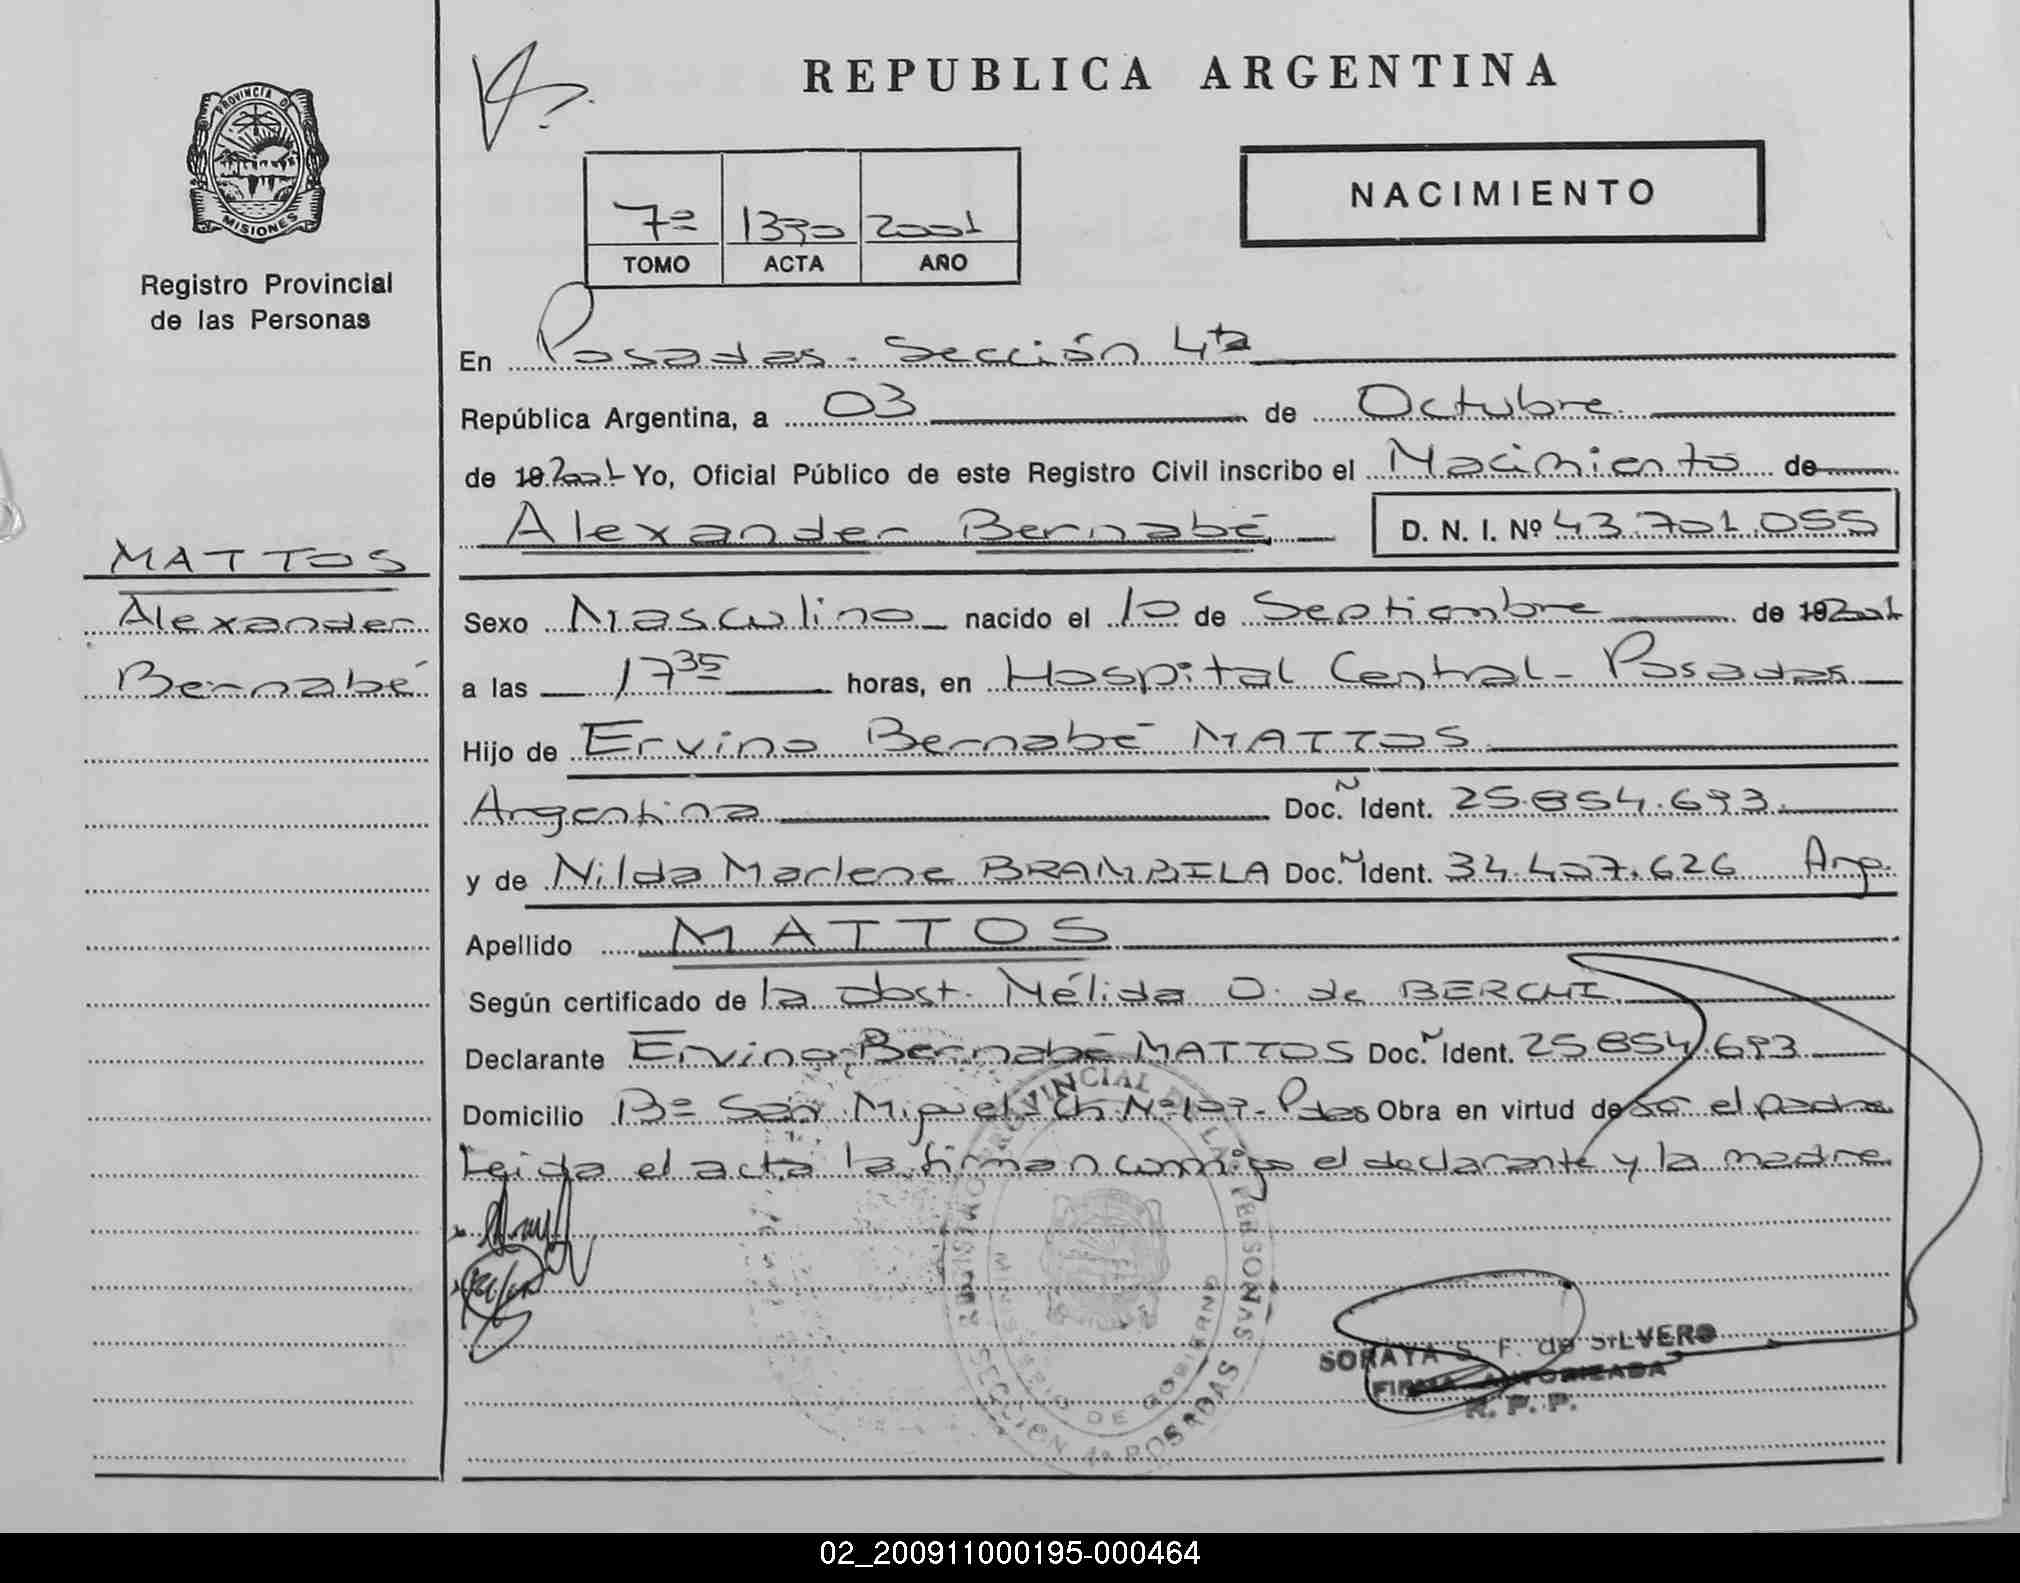 REPUBLICA ARGENTINA
PROVINCIA DE
MISIONES
Registro Provincial
de las Personas
7º 1390 2001
TOMO ACTA AÑO
NACIMIENTO
En Posadas. Sección 4ta
República Argentina, a 03 de Octubre
de 19 2001 Yo, Oficial Público de este Registro Civil inscribo el Nacimiento de
Alexander Bernabé D. N. I. Nº 43.701.055
MATTOS
Alexander
Bernabé
Sexo Masculino nacido el 10 de Septiembre de 19 2001
a las 17 35 horas, en Hospital Central - Posadas
Hijo de Ervino Bernabé MATTOS
Argentina Doc. N Ident. 25.854.693.
y de Nilda Marlene BRAMBILA Doc. N Ident. 34.407.626 Arg.
Apellido MATTOS
Según certificado de la Obst. Nélida O. de BERCHI
Declarante Ervino Bernabé MATTOS Doc. N Ident. 25.854.693
Domicilio Bº San Miguel - Ch Nº 107 - Pdas Obra en virtud de ser el padre
Leida el acta la firman conmigo el declarante y la madre
REGISTRO PROVINCIAL DE LAS PERSONAS
MINISTERIO DE GOBIERNO
SECCION 4ª POSADAS
SORAYA S. F. de SILVERO
FIRMA AUTORIZADA
R. P. P.
02_200911000195-000464